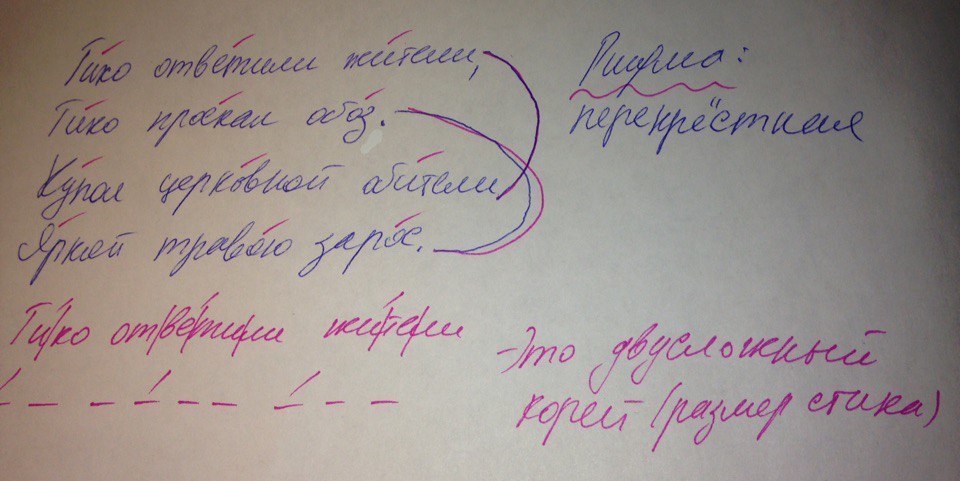 Тихо ответили жители,
Тихо проехал обоз.
Купол церковной обители
Яркой травою зарос.
Рифма:
перекрёстная
Тихо ответили жители
- Это двусложный
хорей (размер стиха)